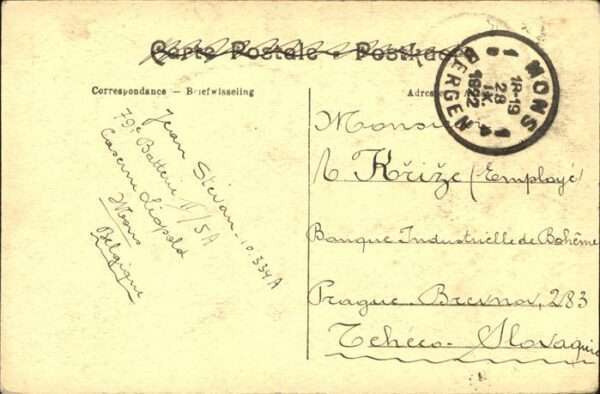 Carte Postale - Postkaart
Correspondance — Briefwisseling
Jean Stevan. 10.334A
79e Batterie II/5A
Caserne Léopold
Mons
Belgique
MONS
BERGEN
18-19
28
IX
1922
Monsieur
Křiže (Employé)
Banque Industrielle de Bohême
Prague Brevnov, 283
Tchéco-Slovaquie